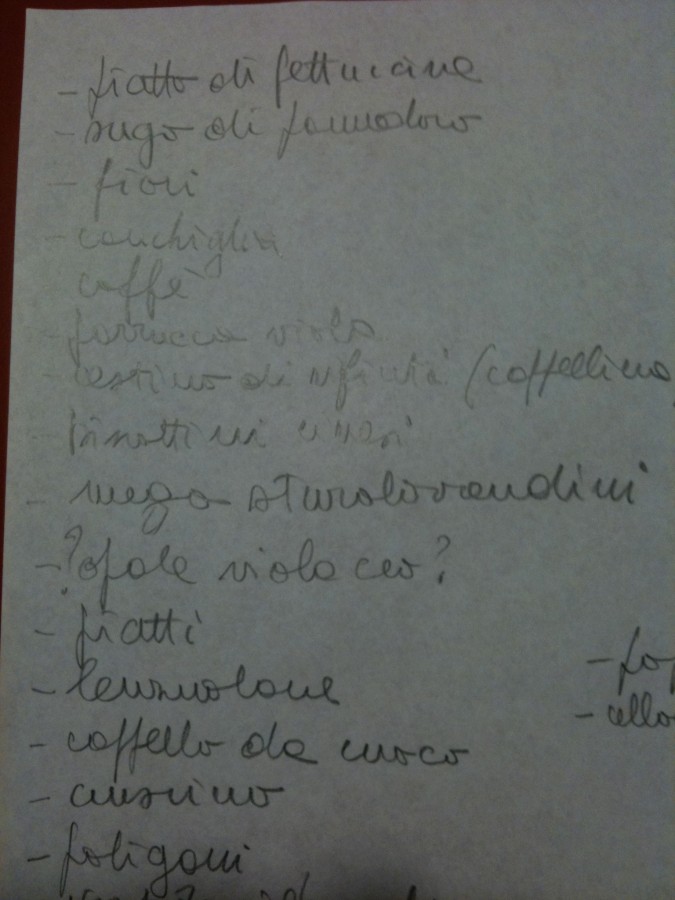 - piatto di fettucine
- sugo di pomodoro
- fiori
- conchiglia
caffè
- parrucca viola
- cestino di rifiuti (cappellino
- binottini
- mega sturalavandini
- ? opale violaceo?
- piatti
- lenzuolone
- cappello da cuoco
- cuscino
- poligoni
- po
- cello